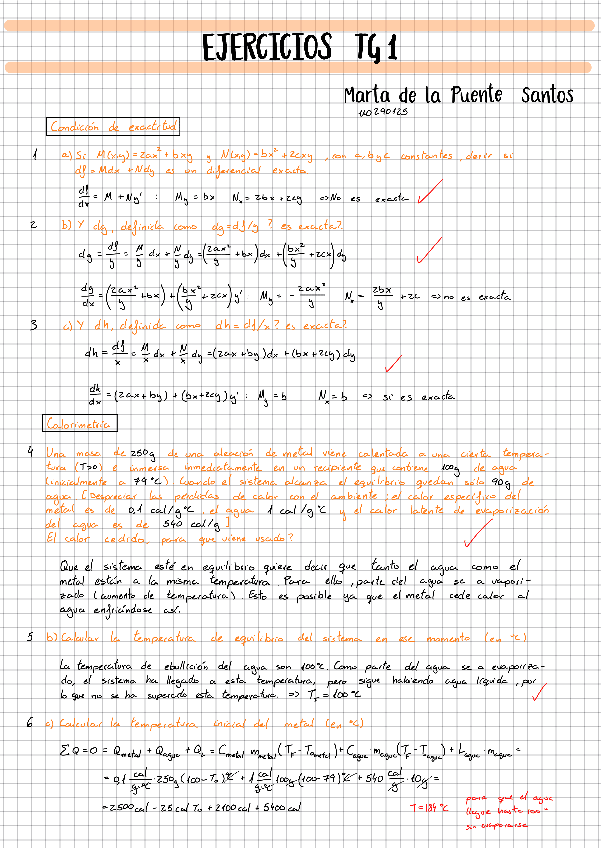 EJERCICIOS TG1
Marta de la Puente Santos
110290125
Condición de exactitud
1 a) Si M(x,y)=2ax² + bxy y N(x,y)=bx²+2cxy, con a, b y c constantes, decir si
df=Mdx+Ndy es un diferencial exacta
df/dx = M + Ny' : My = bx Nx = 2bx + 2cy ⇒ No es exacta
2 b) Y dg, definida como dg=df/y ? es exacta?
dg = df/y = M/y dx + N/y dy = (2ax²/y + bx)dx + (bx²/y + 2cx)dy
dg/dx = (2ax²/y + bx) + (bx²/y + 2cx)y' My = - 2ax²/y Nx = 2bx/y + 2c ⇒ no es exacta
3 c) Y dh, definida como dh = df/x ? es exacta?
dh = df/x = M/x dx + N/x dy = (2ax + by)dx + (bx + 2cy)dy
dh/dx = (2ax+by) + (bx+2cy)y' : My = b Nx = b ⇒ si es exacta
Calorimetría
4 Una masa de 250g de una aleación de metal viene calentada a una cierta tempera-
tura (T>0) e inmersa inmediatamente en un recipiente que contiene 100g de agua
(inicialmente a 79°C) Cuando el sistema alcanza el equilibrio quedan sólo 90g de
agua [Despreciar las pérdidas de calor con el ambiente; el calor específico del
metal es de 0,1 cal/g°C, el agua 1 cal/g°C y el calor latente de evaporización
del agua es de 540 cal/g]
El calor cedido, para que viene usado?
Que el sistema esté en equilibrio quiere decir que tanto el agua como el
metal están a la misma temperatura. Para ello, parte del agua se a vapori-
zado (aumento de temperatura). Esto es posible ya que el metal cede calor al
agua enfriándose así.
5 b) Calcular la temperatura de equilibrio del sistema en ese momento (en °C)
La temperatura de ebullición del agua son 100°C. Como parte del agua se a evaporiza-
do, el sistema ha llegado a esta temperatura, pero sigue habiendo agua líquida, por
lo que no se ha superado esta temperatura. ⇒ TF = 100°C
6 c) Calcular la temperatura inicial del metal (en °C)
ΣQ=0 = Qmetal + Qagua + QL = Cmetal mmetal (TF - Tometal) + Cagua magua (TF - Tagua) + Lagua magua =
= 0,1 cal/g·°C · 250g (100-To)°C + 1 cal/g·°C 100g (100-79)°C + 540 cal/g · 10g =
= 2500cal - 25cal To + 2100cal + 5400cal
T=184°C
para que el agua
llegue hasta 100°
sin evaporarse